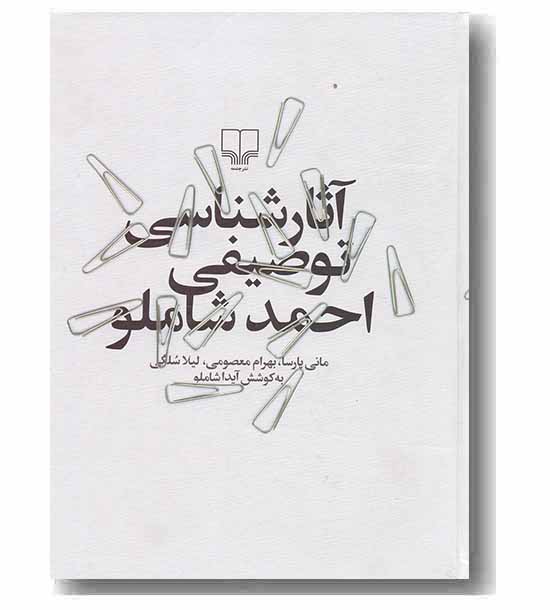 نشرچشمه
آثارشناسی
توصیفی
احمد شاملو
مانی پارسا، بهرام معصومی، لیلا سُلگی
به کوشش آیدا شاملو